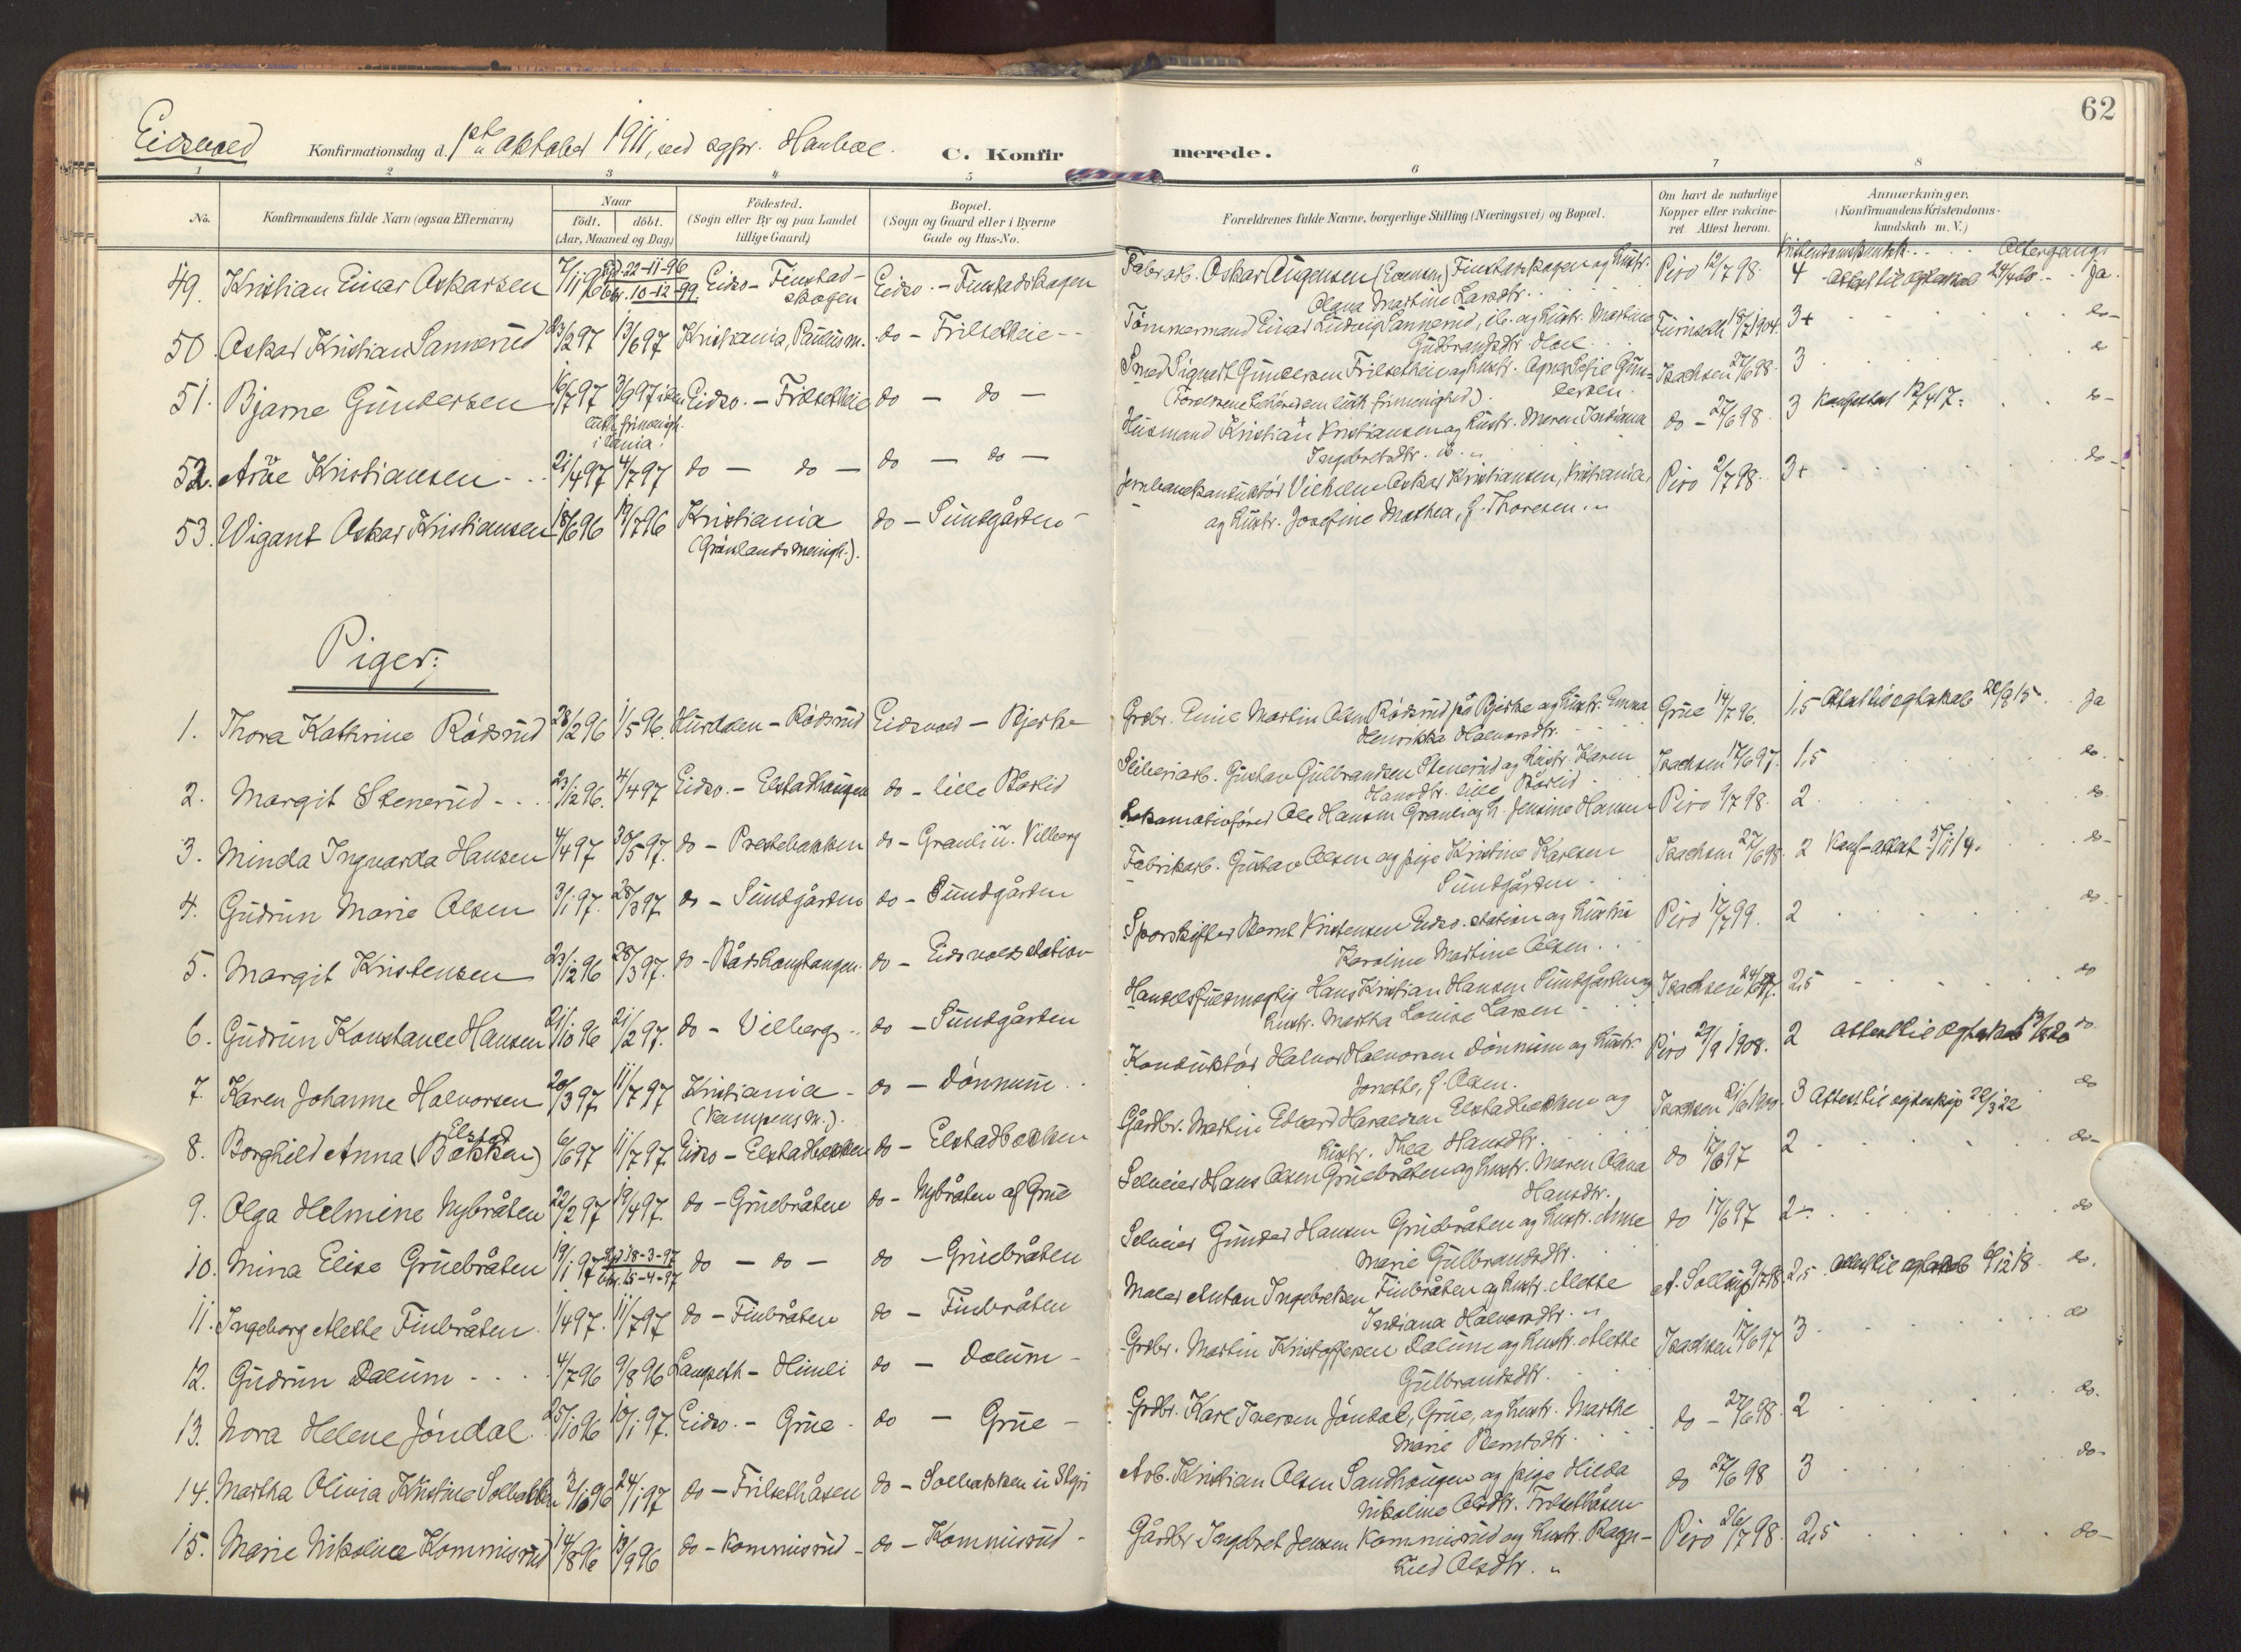 62
Eidsvold Konfirmationsdag d. 1ste oktober 1911, ved sgpr. Hauboe. C. Konfirmerede.
1 2 3 4 5 6 7 8
No.
Konfirmandens fulde Navn (ogsaa Efternavn)
Naar
født. døbt.
(Aar, Maaned og Dag)
Fødested.
(Sogn eller By og paa Landet
tillige Gaard)
Bopæl.
(Sogn og Gaard eller i Byerne
Gade og Hus-No.
Forældrenes fulde Navne, borgerlige Stilling (Næringsvei) og Bopæl.
Om havt de naturlige
Kopper eller vakcine-
ret Attest herom.
Anmærkninger.
(Konfirmandens Kristendoms-
kundskab m. V.)
Altergang:
49. Kristian Einar Oskarsen 7/11 96 22-11-96 10-12-99 Eidsv. - Finstadskogen Eidsv. - Finstadskogen
Olava Martine Larsdtr. Piro 12/7 98. 4 Ja.
50. Oskar Kristian Sannerud 23/2 97 13/6 97 Kristiania, Paulusm. do - Frilsetheie
Tømmermand Einar Ludvig Sannerud, ib. og hustr. Martine
Gudbrandsdtr. Hoel Furuseth 18/7 1904. 3+ do-
51. Bjarne Gundersen 16/7 97 3/9 97 i den Eidsv. - Frilsetheie do - do -
luth. frimenigh.
i Dania.
Smed Sigvart Gundersen Frilsetheie og hustr. Agnes Sofie Gun-
dersen. Isachsen 27/6 98. 3 do
52. Arve Kristiansen 21/4 97 4/7 97 do - do - do - do -
Husmand Kristian Kristiansen og hustr. Maren Indiana
Ingebretsdtr. ib. do - 27/6 98. 3 do-
53. Wigant Oskar Kristiansen 18/6 96 19/7 96 Kristiania do - Sundgården
(Grønlands menigh.).
Jernbanekonduktør Vilhelm Oskar Kristiansen, Kristiania,
og hustr. Josefine Mathea, f. Thoresen. Piro 2/7 98. 3+ do-
Piger:
1. Thora Kathrine Rødsrud 28/2 96 1/5 96. Hurdalen - Rødsrud Eidsvold - Bjerke
Grdbr. Emil Martin Olsen Rødsrud på Bjerke og hustr. Emma
Henrikka Halvorsdtr. Grue 14/7 96. 1,5 Attest til egteskab 20/8 15. Ja
2. Margit Stenerud 23/12 96. 4/4 97 Eidsv. - Elstadhaugen do - lille Bårlid
Sliberiarb. Gustav Gulbrandsen Stenerud og hustr. Karen
Hansdtr. lille Bårlid Isachsen 17/6 97. 1,5 do.
3. Minda Ingvarda Hansen 4/4 97 30/5 97. do - Prestebakken do - Grauli u. Vilberg
Lokomotivfører Ole Hansen Grauli og h. Jensine Hansen Piro 9/7 98. 2 do.
4. Gudrun Marie Olsen 3/1 97. 28/3 97 do - Sundgården do - Sundgården
Fabrikarb. Gustav Olsen og pige Kristine Karlsen
Sundgården. Isachsen 27/6 98. 2 Konf-attest do-
5. Margit Kristensen 23/12 96 28/3 97. do - Bårdshaugtangen. do - Eidsvold station
Sporskifter Bernt Kristensen Eidsv. station og hustru
Karoline Martine Olsen. Piro 17/7 99. 2 do.
6. Gudrun Konstance Hansen 21/10 96 21/2 97. do - Vilberg do - Sundgården
Handelsfuldmægtig Hans Kristian Hansen Sundgården og
hustr. Martha Louise Larsen Isachsen 2,5 do
7. Karen Johanne Halvorsen 20/3 97 11/7 97 Kristiania do - Dønnum
(Kampens m.).
Konduktør Halvor Halvorsen Dønnum og hustr.
Jonette, f. Olsen. Piro 29/9 1908. 2 attest til egteskab do
8. Borghild Anna (Bakken) Elstad 6/6 97 11/7 97. Eidsv - Elstadbakken do - Elstadbakken
Gårdbr. Martin Edvard Haraldsen Elstadbakken og
hustr. Thea Hansdtr. Isachsen 21/6 1900. 3 Attest til egteskap 22/3 22 do
9. Olga Helmine Nybråten 22/2 97 19/4 97. do - Gruebråten do - Nybråten af Grue
Selveier Hans Olsen Gruebråten og hustr. Maren Olava
Hansdtr. do 17/6 97 2 do-
10. Mina Elise Gruebråten 19/1 97 18-3-97 15-4-97 do - do - do - Gruebråten
Selveier Gunder Hansen Gruebråten og hustr. Anne
Marie Gulbrandsdtr. do 17/6 97 2- do
11. Ingeborg Mette Finbråten 1/4 97. 11/7 97 do - Finbråten do - Finbråten
Maler Anton Ingebretsen Finbråten og hustr. Mette
Indiana Halvorsdtr. 9/7 98. 2,5 do.
12. Gudrun Dalum 4/7 96 9/8 96 Langseth - Himli do - Dalum
Grdbr. Martin Kristoffersen Dalum og hustr. Mette
Gulbrandsdtr. Isachsen 17/6 97 3 do
13. Nora Helene Jøndal 25/10 96 10/1 97. Eidsv. - Grue do - Grue
Grdbr. Karl Iversen Jøndal, Grue, og hustr. Marthe
Marie Berntsdtr. do - 27/6 98. 2 do.
14. Martha Olivia Kristine Solbakken 24/1 97 do - Frilsethåsen do - Solbakken
Arb. Kristian Olsen Sandhaugen og pige Hilda
Nikoline Olsdtr. Frilsethåsen do 27/6 98 3 do-
15. Marie Nikoline Kommisrud 14/8 96 13/9 96 do - Kommisrud do - Kommisrud
Gårdbr Ingebret Jensen Kommisrud og hustr. Ragn-
hild Olsdtr. Piro 26/7 98. 2,5 do-